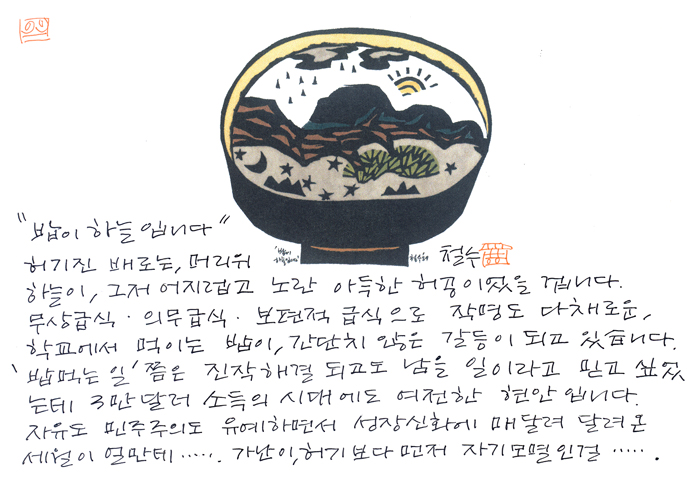 "밥이 하늘입니다"
'밥이
하늘입니다'
철수
허기진 배로는, 머리위
하늘이, 그저 어지럽고 노란 아득한 허공이었을 겝니다.
무상급식 · 의무급식 · 보편적 급식으로 작명도 다채로운,
학교에서 먹이는 밥이, 간단치 않은 갈등이 되고 있습니다.
'밥먹는 일' 쯤은 진작 해결 되고도 남을 일이라고 믿고 싶었
는데 3만달러 소득의 시대에도 여전한 현안입니다.
자유도 민주주의도 유예하면서 성장신화에 매달려 달려온
세월이 얼만데 ‥‥‥. 가난이, 허기보다 먼저 자기모멸인걸 ‥‥‥.